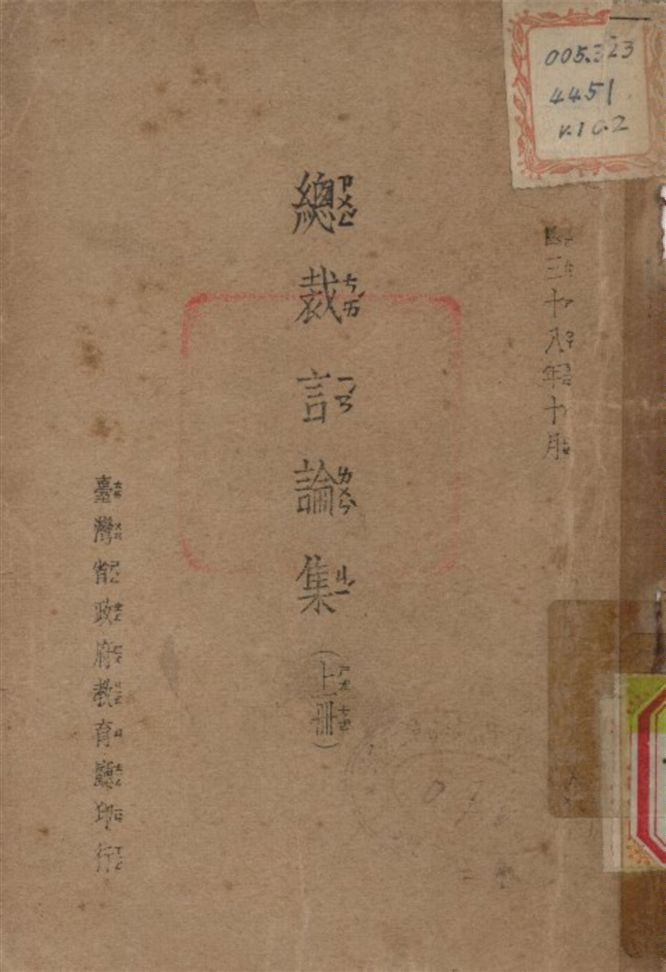 005.323
4451
v.1 c.2
三十八年十月
總裁言論集(上冊)
臺灣省政府教育廳印行